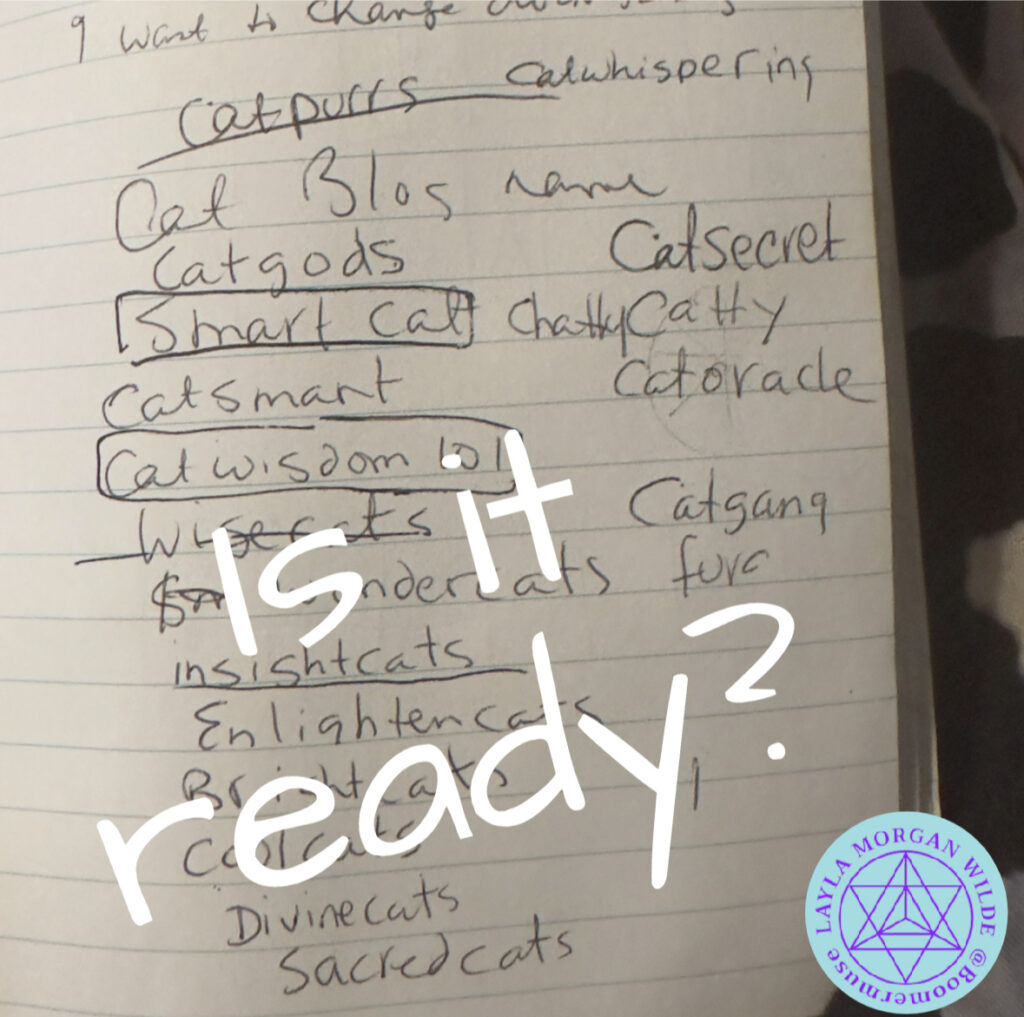 I want to change
Catpurrs Catwhispering
Cat Blog name
Catgods Catsecret
Smart Cat Chatty Catty
Catsmart Catoracle
Catwisdom 101
Wisecats Catgang
wondercats
insightcats
Enlightencats
Brightcats
Coolcats
Divinecats
Sacredcats
Is it
ready?
LAYLA MORGAN WILDE @Boomermuse